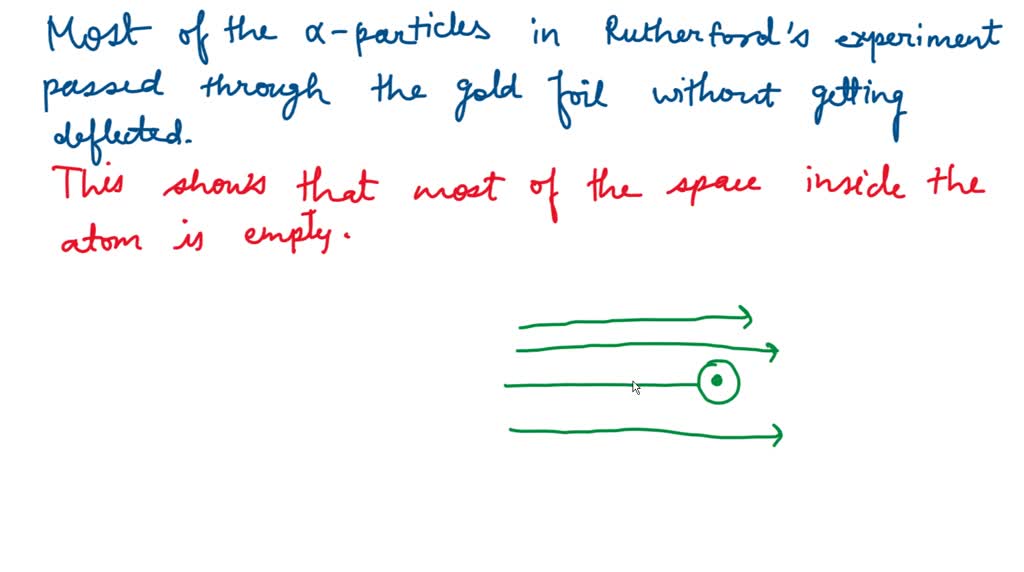 Most of the α-particles in Rutherford's experiment
passed through the gold foil without getting
deflected.
This shows that most of the space inside the
atom is empty.